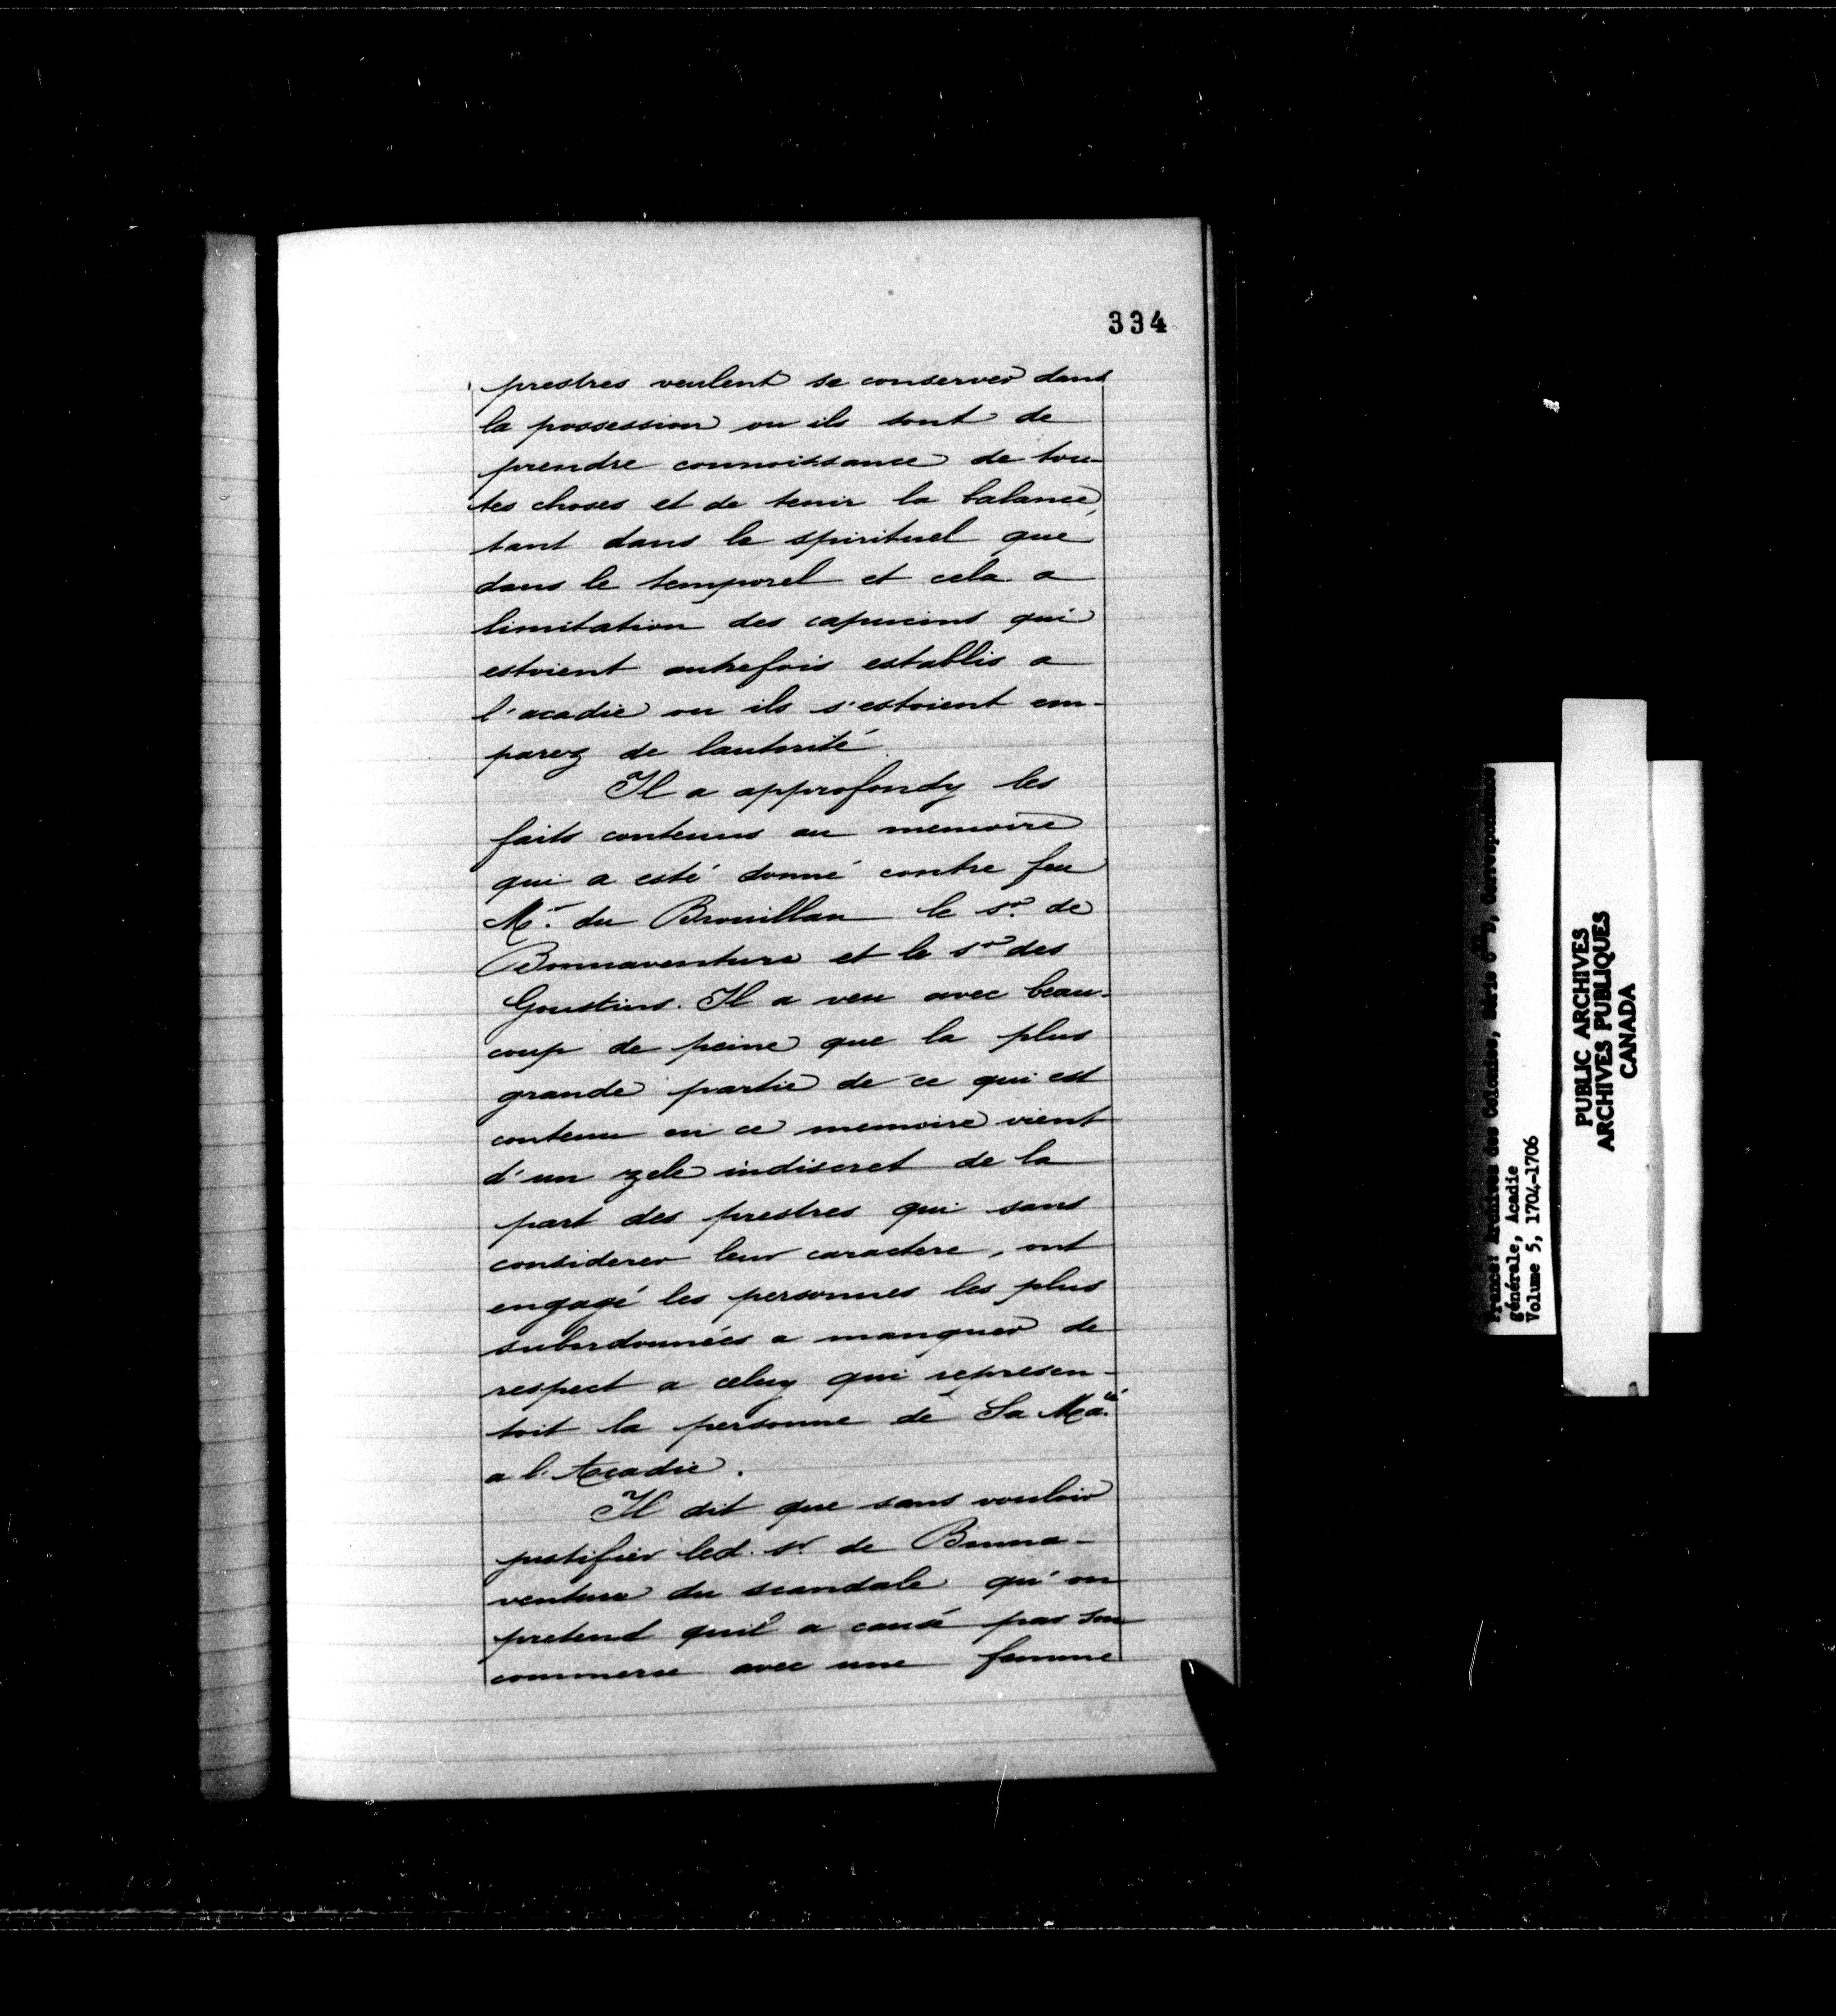 334
prestres veulent se conserver dans
la possession ou ils sont de
prendre connoissance de tou-
tes choses et de tenir la balance,
tant dans le spirituel que
dans le temporel et cela a
limitation des capucins qui
estoient autrefois establis a
l'acadie ou ils s'estoient em-
parez de lautorité
Il a approfondy les
faits contenus au memoire
qui a esté donné contre feu
Mr. du Brouillan le sr. de
Bonnaventure et le sr des
Goustins. Il a veu avec beau-
coup de peine que la plus
grande partie de ce qui est
contenu en ce memoire vient
d'un zele indiscret de la
part des prestres qui sans
considerer leur caractere, ont
engagé les personnes les plus
subordonnées a manquer de
respect a celuy qui represen-
toit la personne de Sa Maté.
a l'Acadie.
Il dit que sans vouloir
justifier led. sr de Bonna-
venture du scandale qu'on
pretend quil a causé par son
commerce avec une femme
France: Archives des Colonies, Série C11D, Correspondance
générale, Acadie
Volume 5, 1704-1706
PUBLIC ARCHIVES
ARCHIVES PUBLIQUES
CANADA